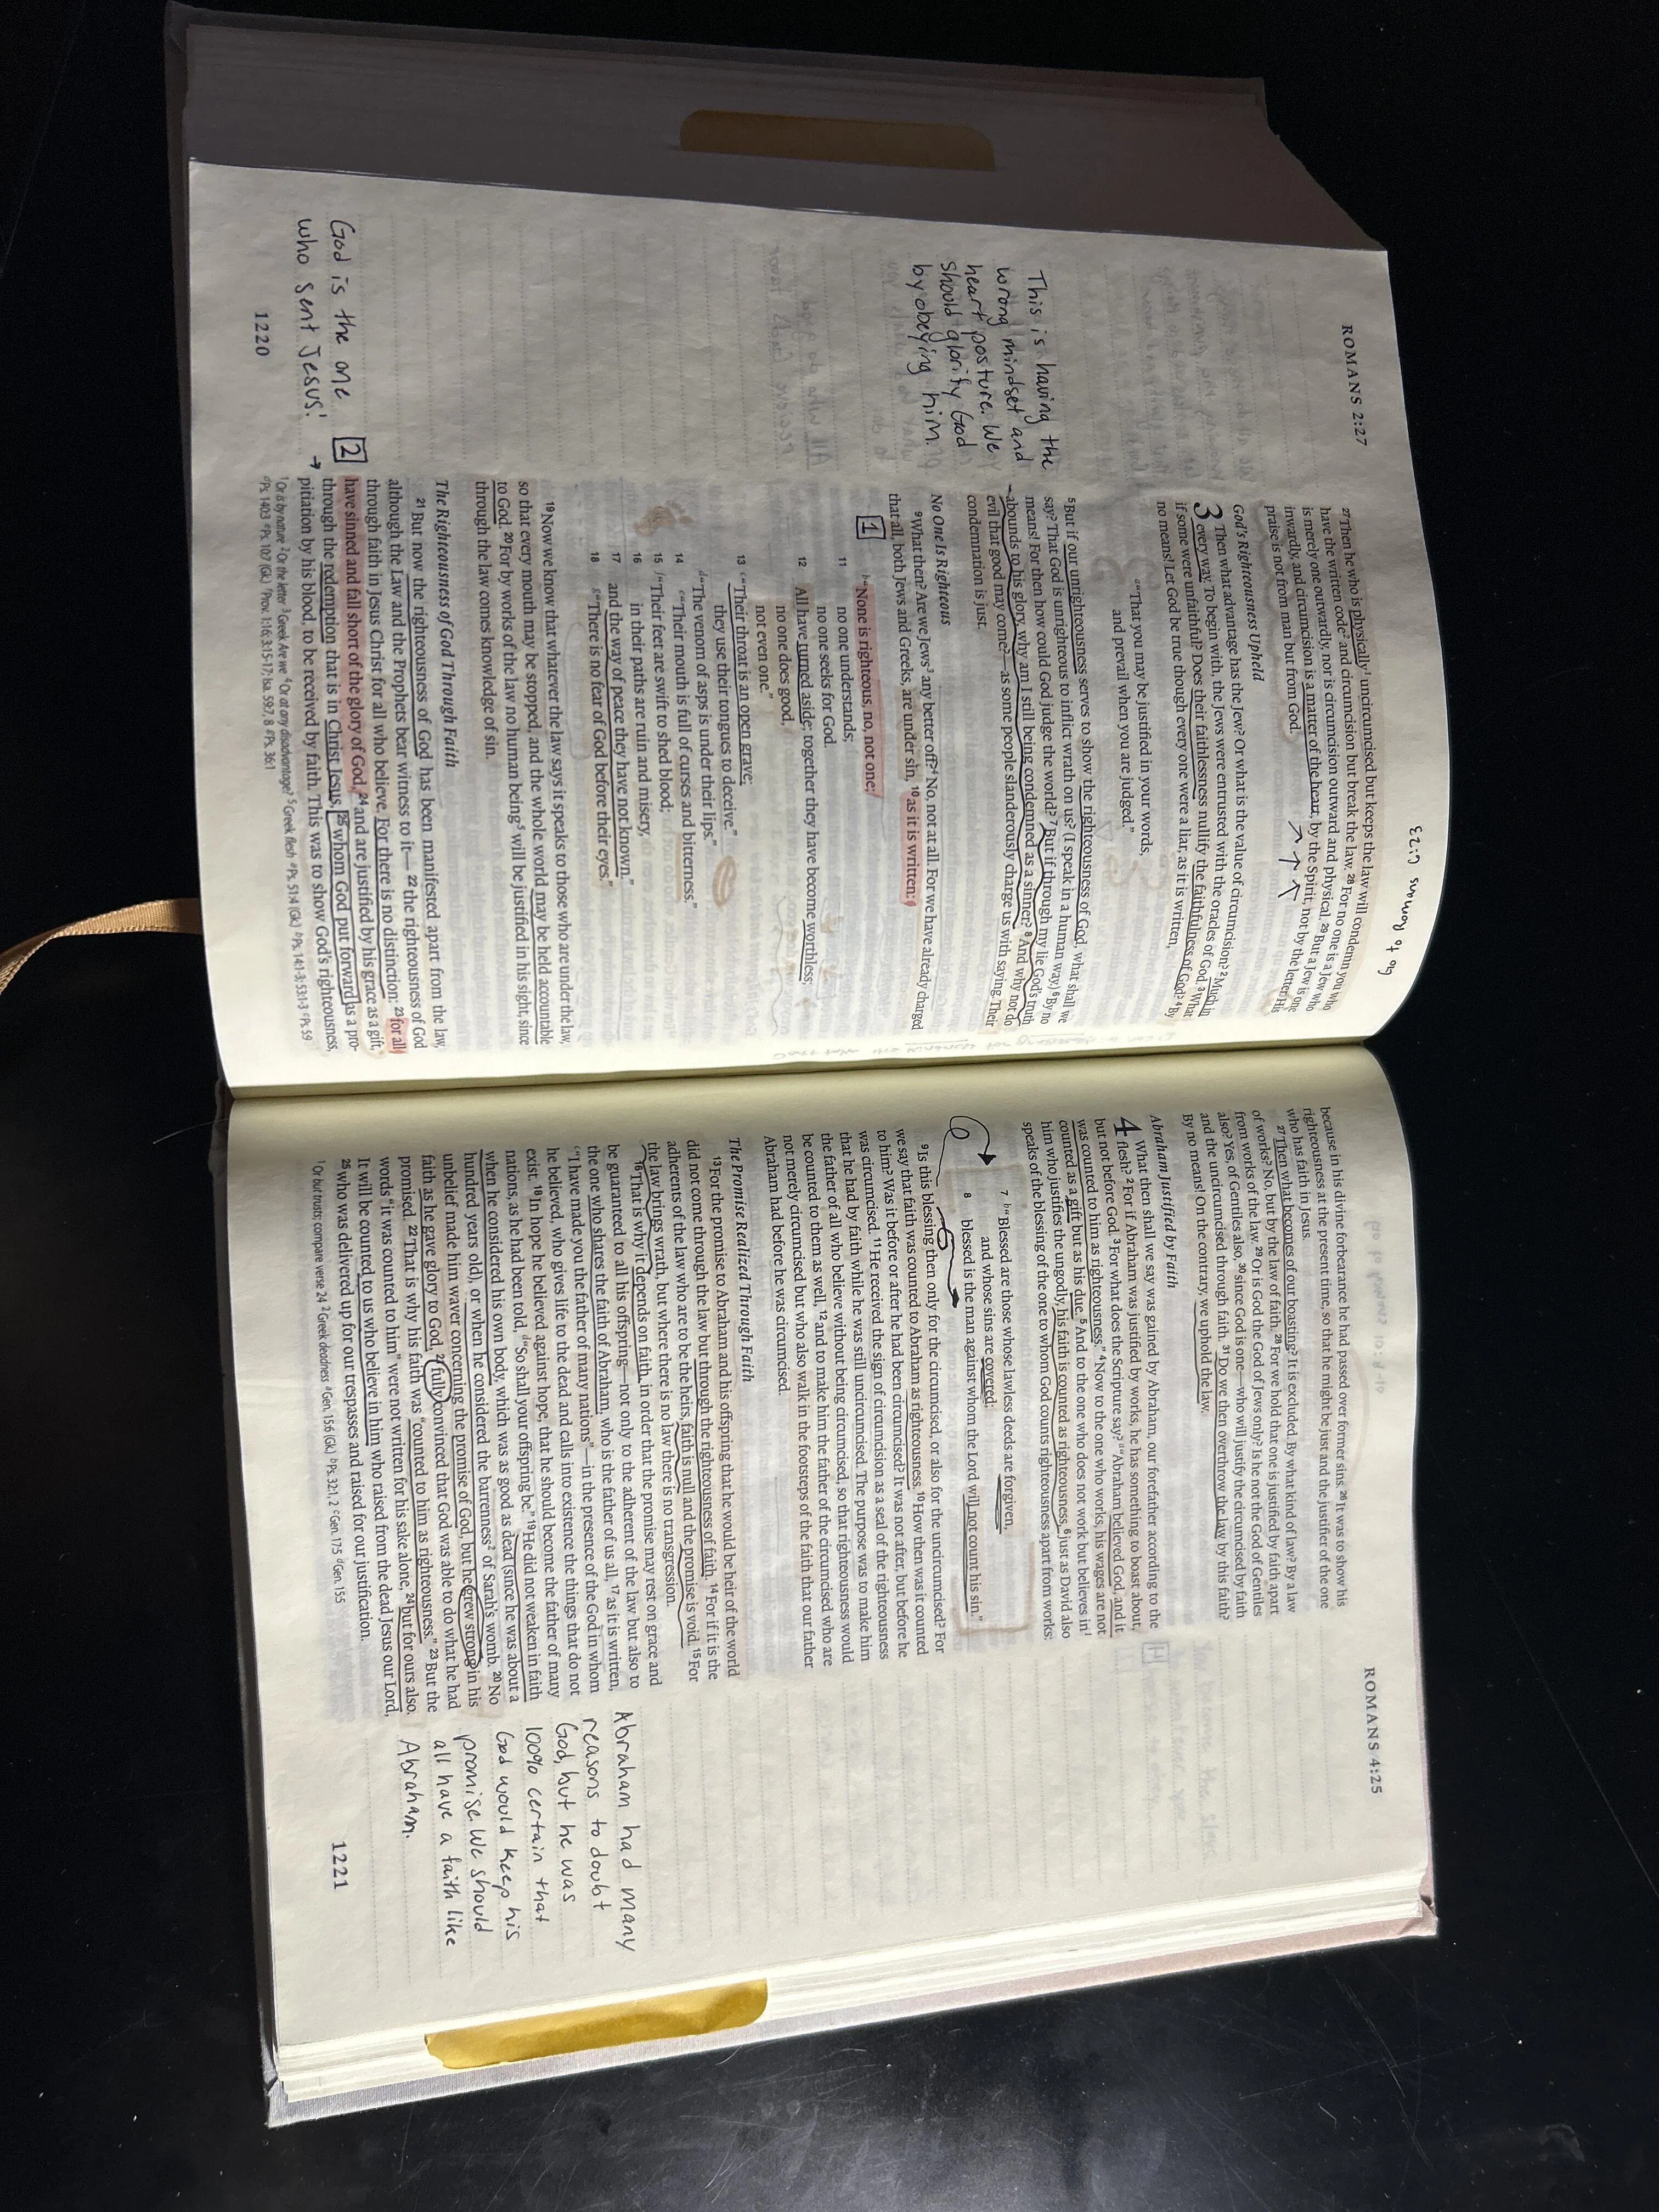 ROMANS 2:27
Go to Romans 6:23
27 Then he who is physically1 uncircumcised but keeps the law will condemn you who
have the written code2 and circumcision but break the law. 28 For no one is a Jew who
is merely one outwardly, nor is circumcision outward and physical. 29 But a Jew is one
inwardly, and circumcision is a matter of the heart, by the Spirit, not by the letter. His
praise is not from man but from God.
God's Righteousness Upheld
3 Then what advantage has the Jew? Or what is the value of circumcision? 2 Much in
every way. To begin with, the Jews were entrusted with the oracles of God. 3 What
if some were unfaithful? Does their faithlessness nullify the faithfulness of God? 4 By
no means! Let God be true though every one were a liar, as it is written,
a"That you may be justified in your words,
and prevail when you are judged."
5 But if our unrighteousness serves to show the righteousness of God, what shall we
say? That God is unrighteous to inflict wrath on us? (I speak in a human way.) 6 By no
means! For then how could God judge the world? 7 But if through my lie God's truth
abounds to his glory, why am I still being condemned as a sinner? 8 And why not do
evil that good may come?—as some people slanderously charge us with saying. Their
condemnation is just.
This is having the
wrong mindset and
heart posture. We
should glorify God
by obeying him.
No One Is Righteous
9 What then? Are we Jews3 any better off?4 No, not at all. For we have already charged
that all, both Jews and Greeks, are under sin, 10 as it is written:
1
b"None is righteous, no, not one;
11 no one understands;
no one seeks for God.
12 All have turned aside; together they have become worthless;
no one does good,
not even one."
13 c"Their throat is an open grave;
they use their tongues to deceive."
d"The venom of asps is under their lips."
14 e"Their mouth is full of curses and bitterness."
15 f"Their feet are swift to shed blood;
16 in their paths are ruin and misery,
17 and the way of peace they have not known."
18 g"There is no fear of God before their eyes."
19 Now we know that whatever the law says it speaks to those who are under the law,
so that every mouth may be stopped, and the whole world may be held accountable
to God. 20 For by works of the law no human being5 will be justified in his sight, since
through the law comes knowledge of sin.
The Righteousness of God Through Faith
21 But now the righteousness of God has been manifested apart from the law,
although the Law and the Prophets bear witness to it— 22 the righteousness of God
through faith in Jesus Christ for all who believe. For there is no distinction: 23 for all
2
have sinned and fall short of the glory of God, 24 and are justified by his grace as a gift,
through the redemption that is in Christ Jesus, 25 whom God put forward as a pro-
pitiation by his blood, to be received by faith. This was to show God's righteousness,
God is the one
who sent Jesus!
1 Or is by nature 2 Or the letter 3 Greek Are we 4 Or at any disadvantage? 5 Greek flesh a Ps. 51:4 (Gk.) b Ps. 14:1-3; 53:1-3 c Ps. 5:9
d Ps. 140:3 e Ps. 10:7 (Gk.) f Prov. 1:16; 3:15-17; Isa. 59:7, 8 g Ps. 36:1
1220
ROMANS 4:25
because in his divine forbearance he had passed over former sins. 26 It was to show his
righteousness at the present time, so that he might be just and the justifier of the one
who has faith in Jesus.
27 Then what becomes of our boasting? It is excluded. By what kind of law? By a law
of works? No, but by the law of faith. 28 For we hold that one is justified by faith apart
from works of the law. 29 Or is God the God of Jews only? Is he not the God of Gentiles
also? Yes, of Gentiles also, 30 since God is one—who will justify the circumcised by faith
and the uncircumcised through faith. 31 Do we then overthrow the law by this faith?
By no means! On the contrary, we uphold the law.
Abraham Justified by Faith
4 What then shall we say was gained by Abraham, our forefather according to the
flesh? 2 For if Abraham was justified by works, he has something to boast about,
but not before God. 3 For what does the Scripture say? a"Abraham believed God, and it
was counted to him as righteousness." 4 Now to the one who works, his wages are not
counted as a gift but as his due. 5 And to the one who does not work but believes in1
him who justifies the ungodly, his faith is counted as righteousness, 6 just as David also
speaks of the blessing of the one to whom God counts righteousness apart from works:
7 b"Blessed are those whose lawless deeds are forgiven,
and whose sins are covered;
8 blessed is the man against whom the Lord will not count his sin."
9 Is this blessing then only for the circumcised, or also for the uncircumcised? For
we say that faith was counted to Abraham as righteousness. 10 How then was it counted
to him? Was it before or after he had been circumcised? It was not after, but before he
was circumcised. 11 He received the sign of circumcision as a seal of the righteousness
that he had by faith while he was still uncircumcised. The purpose was to make him
the father of all who believe without being circumcised, so that righteousness would
be counted to them as well, 12 and to make him the father of the circumcised who are
not merely circumcised but who also walk in the footsteps of the faith that our father
Abraham had before he was circumcised.
The Promise Realized Through Faith
13 For the promise to Abraham and his offspring that he would be heir of the world
did not come through the law but through the righteousness of faith. 14 For if it is the
adherents of the law who are to be the heirs, faith is null and the promise is void. 15 For
the law brings wrath, but where there is no law there is no transgression.
16 That is why it depends on faith, in order that the promise may rest on grace and
be guaranteed to all his offspring—not only to the adherent of the law but also to
the one who shares the faith of Abraham, who is the father of us all, 17 as it is written,
c"I have made you the father of many nations"—in the presence of the God in whom
he believed, who gives life to the dead and calls into existence the things that do not
exist. 18 In hope he believed against hope, that he should become the father of many
nations, as he had been told, d"So shall your offspring be." 19 He did not weaken in faith
when he considered his own body, which was as good as dead (since he was about a
hundred years old), or when he considered the barrenness2 of Sarah's womb. 20 No
unbelief made him waver concerning the promise of God, but he grew strong in his
faith as he gave glory to God, 21 fully convinced that God was able to do what he had
promised. 22 That is why his faith was "counted to him as righteousness." 23 But the
words "it was counted to him" were not written for his sake alone, 24 but for ours also.
It will be counted to us who believe in him who raised from the dead Jesus our Lord,
25 who was delivered up for our trespasses and raised for our justification.
Abraham had many
reasons to doubt
God, but he was
100% certain that
God would keep his
promise. We should
all have a faith like
Abraham.
1 Or but trusts; compare verse 24 2 Greek deadness a Gen. 15:6 (Gk.) b Ps. 32:1, 2 c Gen. 17:5 d Gen. 15:5
1221